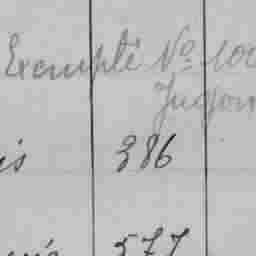 Exempté No 100
Jugon
is 386
577